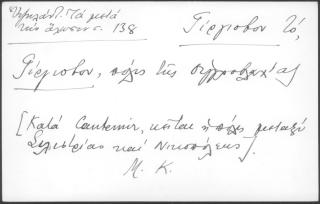 Ὑψηλάντ. Τὰ μετὰ
τὴν ἅλωσιν σ. 138
Γιέργιοβον τό,
Γιέργιοβον, πόλις τῆς Οὐγγροβλαχίας
[Κατὰ Cantemir, κεῖται ἡ πόλις μεταξὺ
Σιλιστρίας καὶ Νικοπόλεως].
Μ. Κ.